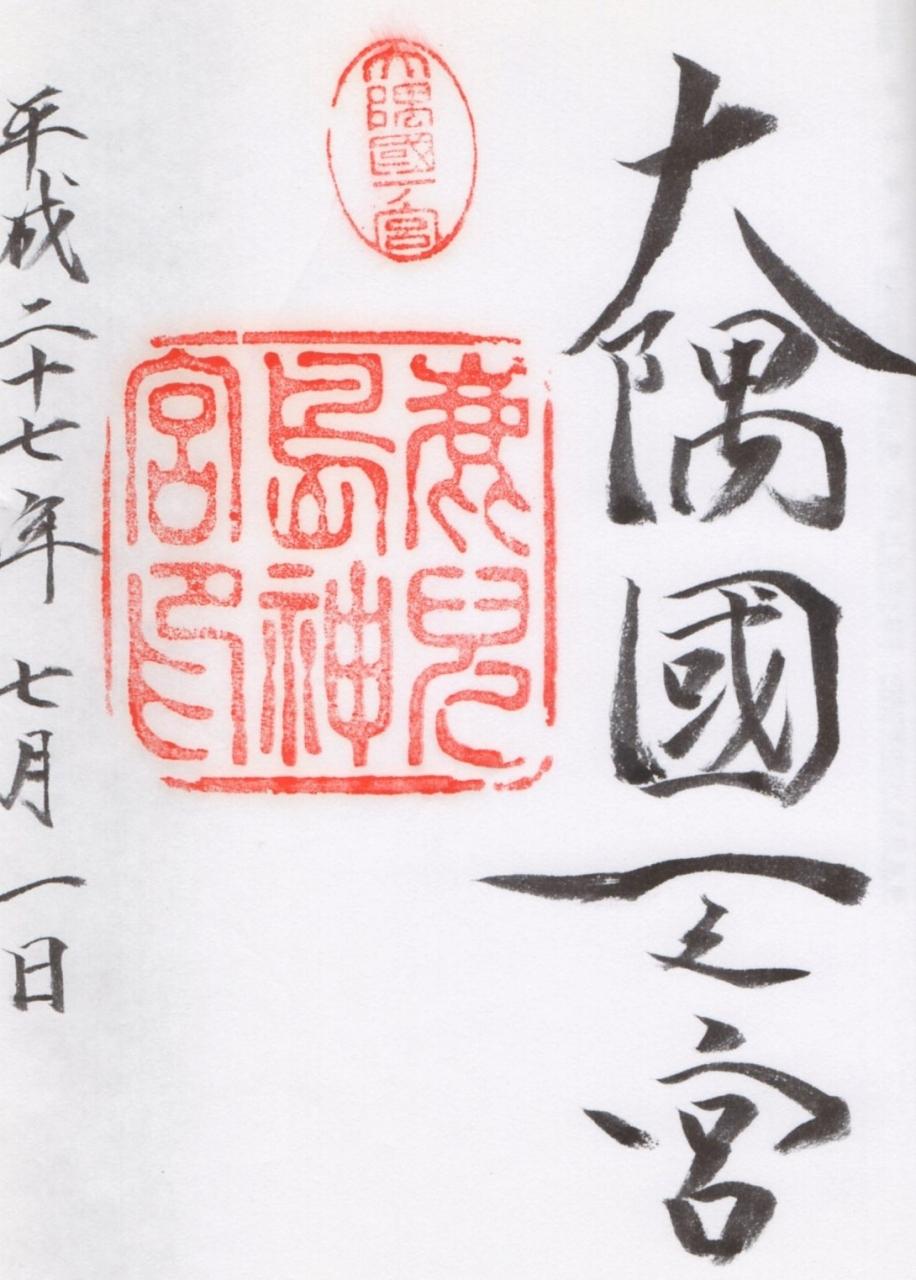 大隅國一之宮
大隅國一宮
鹿兒
島神
宮印
平成二十七年 七月 一日